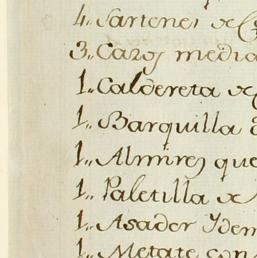 4,, Sartenes de C
3,, Cazos media
1,, Caldereta de
1,, Barquilla d
1,, Almirez que
1,, Paletilla de
1,, Asador Ydem
1,, Metate con